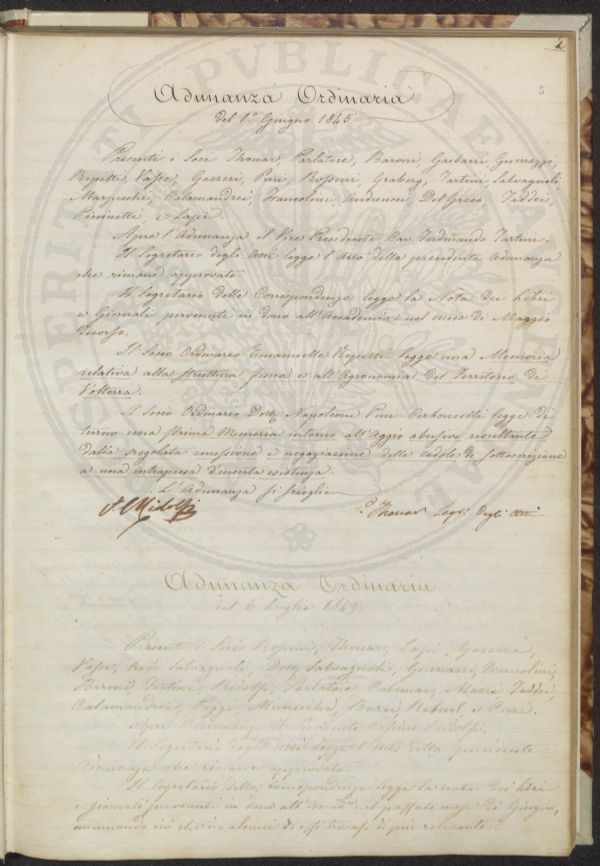 2
5
Adunanza Ordinaria
del 1° Giugno 1845
Presenti i Soci Thouar, Parlatore, Baroni, Gasbarri, Guerrazzi,
Repetti, Vaspe, Gazzeri, Pini, Rossini, Graberg, Tartini, Salvagnoli
Marzucchi, Calamandrei, Francolini, Andreucci, Del Greco, Taddei,
Piccinetti e Lapi.
Apre l'Adunanza il Vice Presidente Cav. Ferdinando Tartini.
Il Segretario degli Atti legge l'Atto della precedente Adunanza
che rimane approvato.
Il Segretario delle Corrispondenze legge la Nota dei Libri
e Giornali pervenuti in dono all'Accademia nel mese di Maggio
decorso.
Il Socio Ordinario Emanuelle Repetti legge una Memoria
relativa alla struttura fisica e all'Agronomia del Territorio di
Volterra.
Il Socio Ordinario Dott. Napoleone Pini legge di
turno una prima Memoria intorno all'Aggio abusivo resultante
dalla regolata emissione e negoziazione delle cedole di sottoscrizione
a una intrapresa d'incerta esistenza.
L'Adunanza si scioglie
C. Ridolfi
P. Thouar Segr. degli Atti
Adunanza Ordinaria
del 6 Luglio 1845
Presenti i Soci Thouar, Lapi, Gazzeri,
Salvagnoli, Dott. Salvagnoli, Guerrazzi, Francolini,
Baroni, Tartini, Ridolfi, Parlatore, Taddei,
Calamandrei, Poggi,
Apre l'Adunanza il Presidente Cosimo Ridolfi.
Il Segretario degli Atti legge l'Atto della precedente
Adunanza che rimane approvato.
Il Segretario delle Corrispondenze legge la nota dei libri
e giornali pervenuti in dono all'Accad. nel passato mese di Giugno,
ciò che in alcuni di essi trovasi di più rilevante.
SPERITATI PVBLICAE